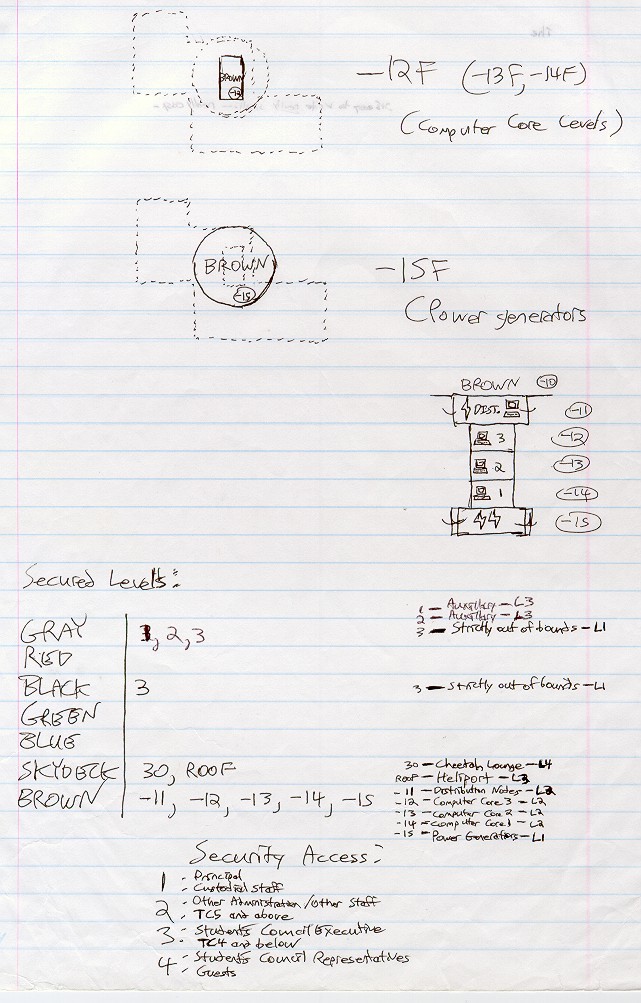 The
BROWN
-12
-12F (-13F, -14F)
(Computer Core Levels)
BROWN
-15
-15F
(Power generators
BROWN -10
DIST. -11
3 -12
2 -13
1 -14
-15
Secured Levels:
GRAY 1, 2, 3
RED
BLACK 3
GREEN
BLUE
SKYDECK 30, ROOF
BROWN -11, -12, -13, -14, -15
1 - Auxiliary - L3
2 - Auxiliary - L3
3 - Strictly out of bounds - L1
3 - strictly out of bounds - L1
30 - Cheetah Lounge - L4
ROOF - Heliport - L3
-11 - Distribution Nodes - L2
-12 - Computer Core 3 - L2
-13 - Computer Core 2 - L2
-14 - Computer Core 1 - L2
-15 - Power Generators - L1
Security Access:
1 - Principal
- Custodial Staff
2 - Other Administration/Other Staff
- TC5 and above
3 - Students Council Executive
- TC4 and below
4 - Students Council Representatives
- Guests